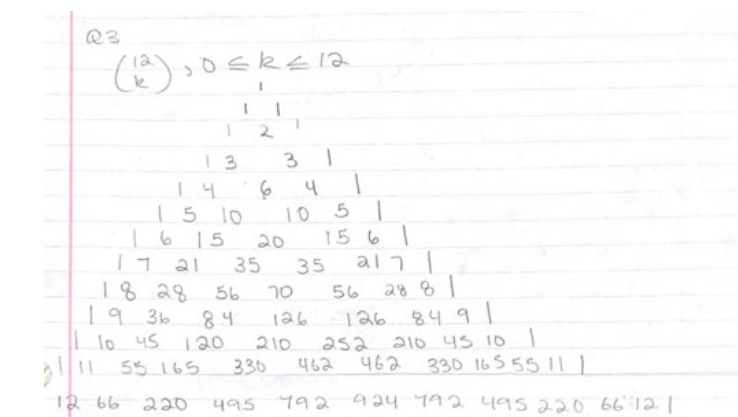 Q3
(12 k), 0 ≤ k ≤ 12
1
1 1
1 2 1
1 3 3 1
1 4 6 4 1
1 5 10 10 5 1
1 6 15 20 15 6 1
1 7 21 35 35 21 7 1
1 8 28 56 70 56 28 8 1
1 9 36 84 126 126 84 9 1
1 10 45 120 210 252 210 45 10 1
1 11 55 165 330 462 462 330 165 55 11 1
12 66 220 495 792 924 792 495 220 66 12 1